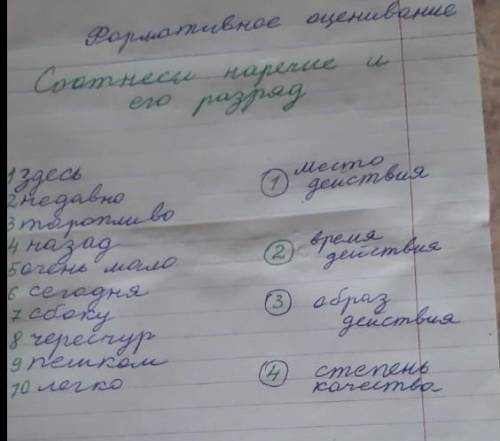 Формативное оценивание
Соотнеси наречие и
его разряд
1 здесь
2 недавно
3 торопливо
4 назад
5 очень мало
6 сегодня
7 сбоку
8 чересчур
9 пешком
10 легко
1 место
действия
2 время
действия
3 образ
действия
4 степень
качества